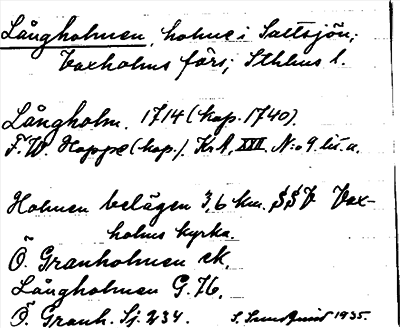 Långholmen, holme i Saltsjön,
Vaxholms förs; Sthlms l.
Långholm. 1714 (kop. 1740).
F. W. Hoppe (kop.). Kr A. XVII. N:o 9 lit. a.
Holmen belägen 3,6 km. SSV Vax-
holms kyrka.
Ö. Granholmen ek.
Långholmen G.76.
Ö. Granh. Sj. 234. 1935.